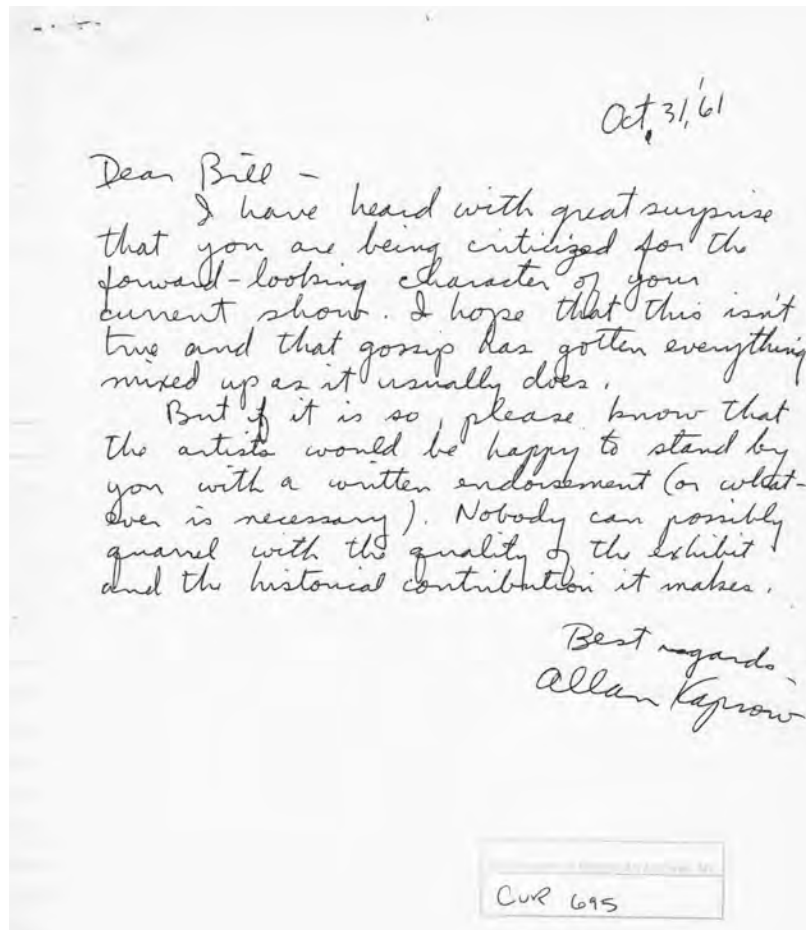 Oct. 31, '61
Dear Bill –
I have heard with great surprise
that you are being criticized for the
forward-looking character of your
current show. I hope that this isn't
true and that gossip has gotten everything
mixed up as it usually does.
But if it is so, please know that
the artists would be happy to stand by
you with a written endorsement (or what-
ever is necessary). Nobody can possibly
quarrel with the quality of the exhibit
and the historical contribution it makes.
Best regards –
Allan Kaprow
CUR 695